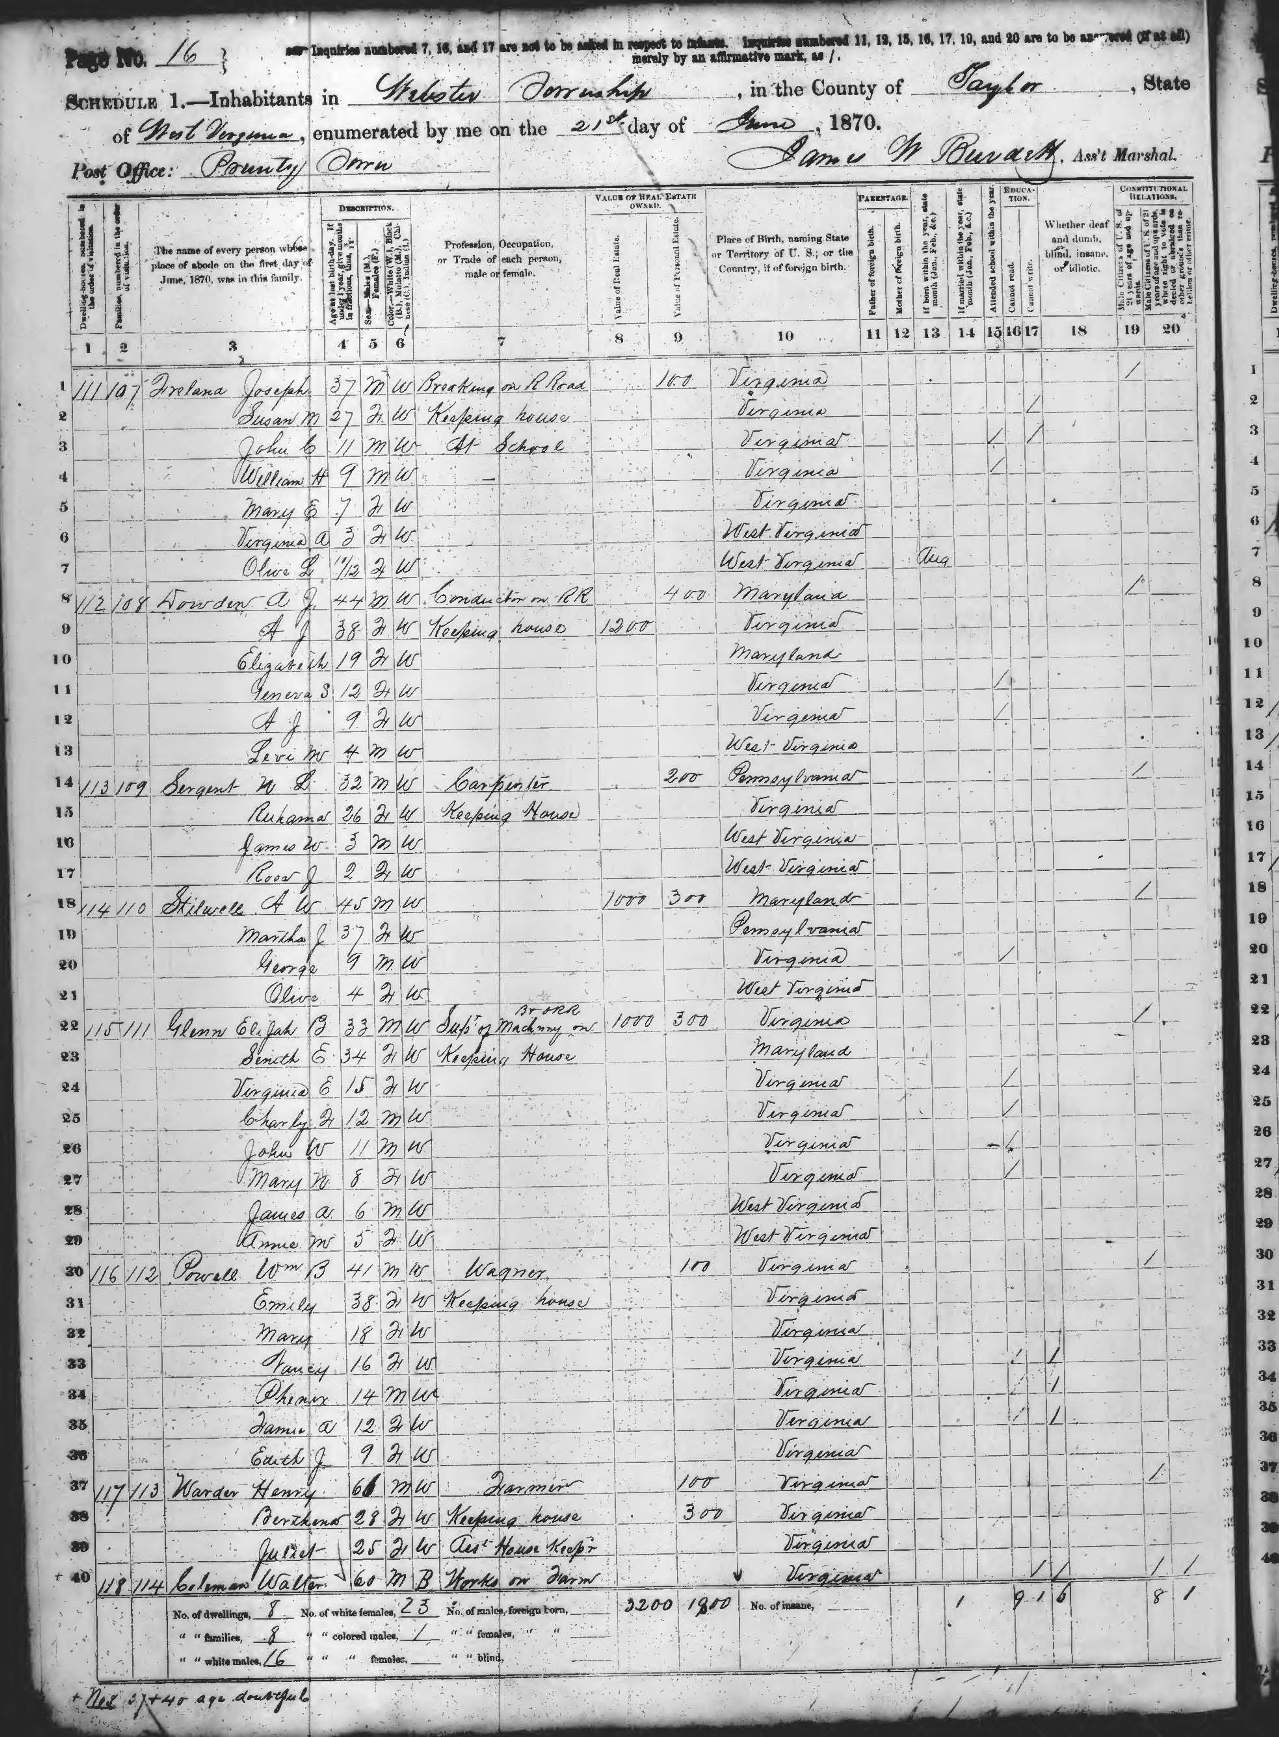 Page No. 16 } Inquiries numbered 7, 16, and 17 are not to be asked in respect to infants. Inquiries numbered 11, 12, 15, 16, 17, 19, and 20 are to be answered (if at all)
merely by an affirmative mark, as /.
SCHEDULE 1.—Inhabitants in Webster Township, in the County of Taylor, State
of West Virginia, enumerated by me on the 21st day of June, 1870.
Post Office: Prunty Town James W Burdett, Ass't Marshal.
Dwelling-houses, numbered in the order of visitation.
Families, numbered in the order of visitation.
The name of every person whose place of abode on the first day of June, 1870, was in this family.
DESCRIPTION.
Age at last birth-day. If under 1 year, give months in fractions, thus, 3/12
Sex.—Males (M.), Females (F.)
Color.—White (W.), Black (B.), Mulatto (M.), Chinese (C.), Indian (I.)
Profession, Occupation, or Trade of each person, male or female.
VALUE OF REAL ESTATE OWNED.
Value of Real Estate.
Value of Personal Estate.
Place of Birth, naming State or Territory of U. S.; or the Country, if of foreign birth.
PARENTAGE.
Father of foreign birth.
Mother of foreign birth.
If born within the year, state month (Jan., Feb., &c.)
If married within the year, state month (Jan., Feb., &c.)
Attended school within the year.
EDUCATION.
Cannot read.
Cannot write.
Whether deaf and dumb, blind, insane, or idiotic.
CONSTITUTIONAL RELATIONS.
Male Citizens of U. S. of 21 years of age and upwards.
Male Citizens of U. S. of 21 years of age and upwards, whose right to vote is denied or abridged on other grounds than rebellion or other crime.
1 2 3 4 5 6 7 8 9 10 11 12 13 14 15 16 17 18 19 20
1 111 107 Ireland Joseph 37 M W Breaking on R Road 100 Virginia /
2 Susan M 27 F W Keeping house Virginia /
3 John C 11 M W At School Virginia / /
4 William H 9 M W — Virginia /
5 Mary E 7 F W Virginia
6 Virginia A 3 F W West Virginia
7 Olive L 10/12 F W West Virginia Aug
8 112 108 Dowden A J 44 M W Conductor on RR 400 Maryland /
9 A J 38 F W Keeping house 1200 Virginia
10 Elizabeth 19 F W Maryland
11 Geneva S 12 F W Virginia /
12 A J 9 F W Virginia /
13 Levi M 4 M W West Virginia
14 113 109 Sergent N L 32 M W Carpenter 200 Pennsylvania /
15 Ruhama 26 F W Keeping House Virginia
16 James W 3 M W West Virginia
17 Rosa J 2 F W West Virginia
18 114 110 Stilwell A W 45 M W 1000 300 Maryland /
19 Martha J 37 F W Pensylvania
20 George 9 M W Virginia /
21 Olive 4 F W West Virginia
22 115 111 Glenn Elijah B 33 M W Supt of Machnry on B & O RR 1000 300 Virginia /
23 Senith E 34 F W Keeping House Maryland
24 Virginia E 15 F W Virginia /
25 Charly F 12 M W Virginia /
26 John W 11 M W Virginia /
27 Mary N 8 F W Virginia /
28 James A 6 M W West Virginia
29 Annie M 5 F W West Virginia
30 116 112 Powell Wm B 41 M W Wagner 100 Virginia /
31 Emily 38 F W Keeping house Virginia
32 Mary 18 F W Virginia
33 Nancy 16 F W Virginia / /
34 14 M W Virginia / /
35 A 12 F W Virginia / /
36 Edith J 9 F W Virginia
37 117 113 Warder Henry 61 M W Farmer 100 Virginia /
38 28 F W Keeping house 300 Virginia
39 Juliet 25 F W Asst House Keepr Virginia
+ 40 118 114 Coleman Walter 60 M B Works on Farm Virginia / / / /
No. of dwellings, 8 No. of white females, 23 No. of males, foreign born, 3200 1800 No. of insane, 1 9 1 6 8 1
" " families, 8 " " colored males, 1 " " females, " "
" " white males, 16 " " " females, " " blind,
+ Nos 37 + 40 age doubtful